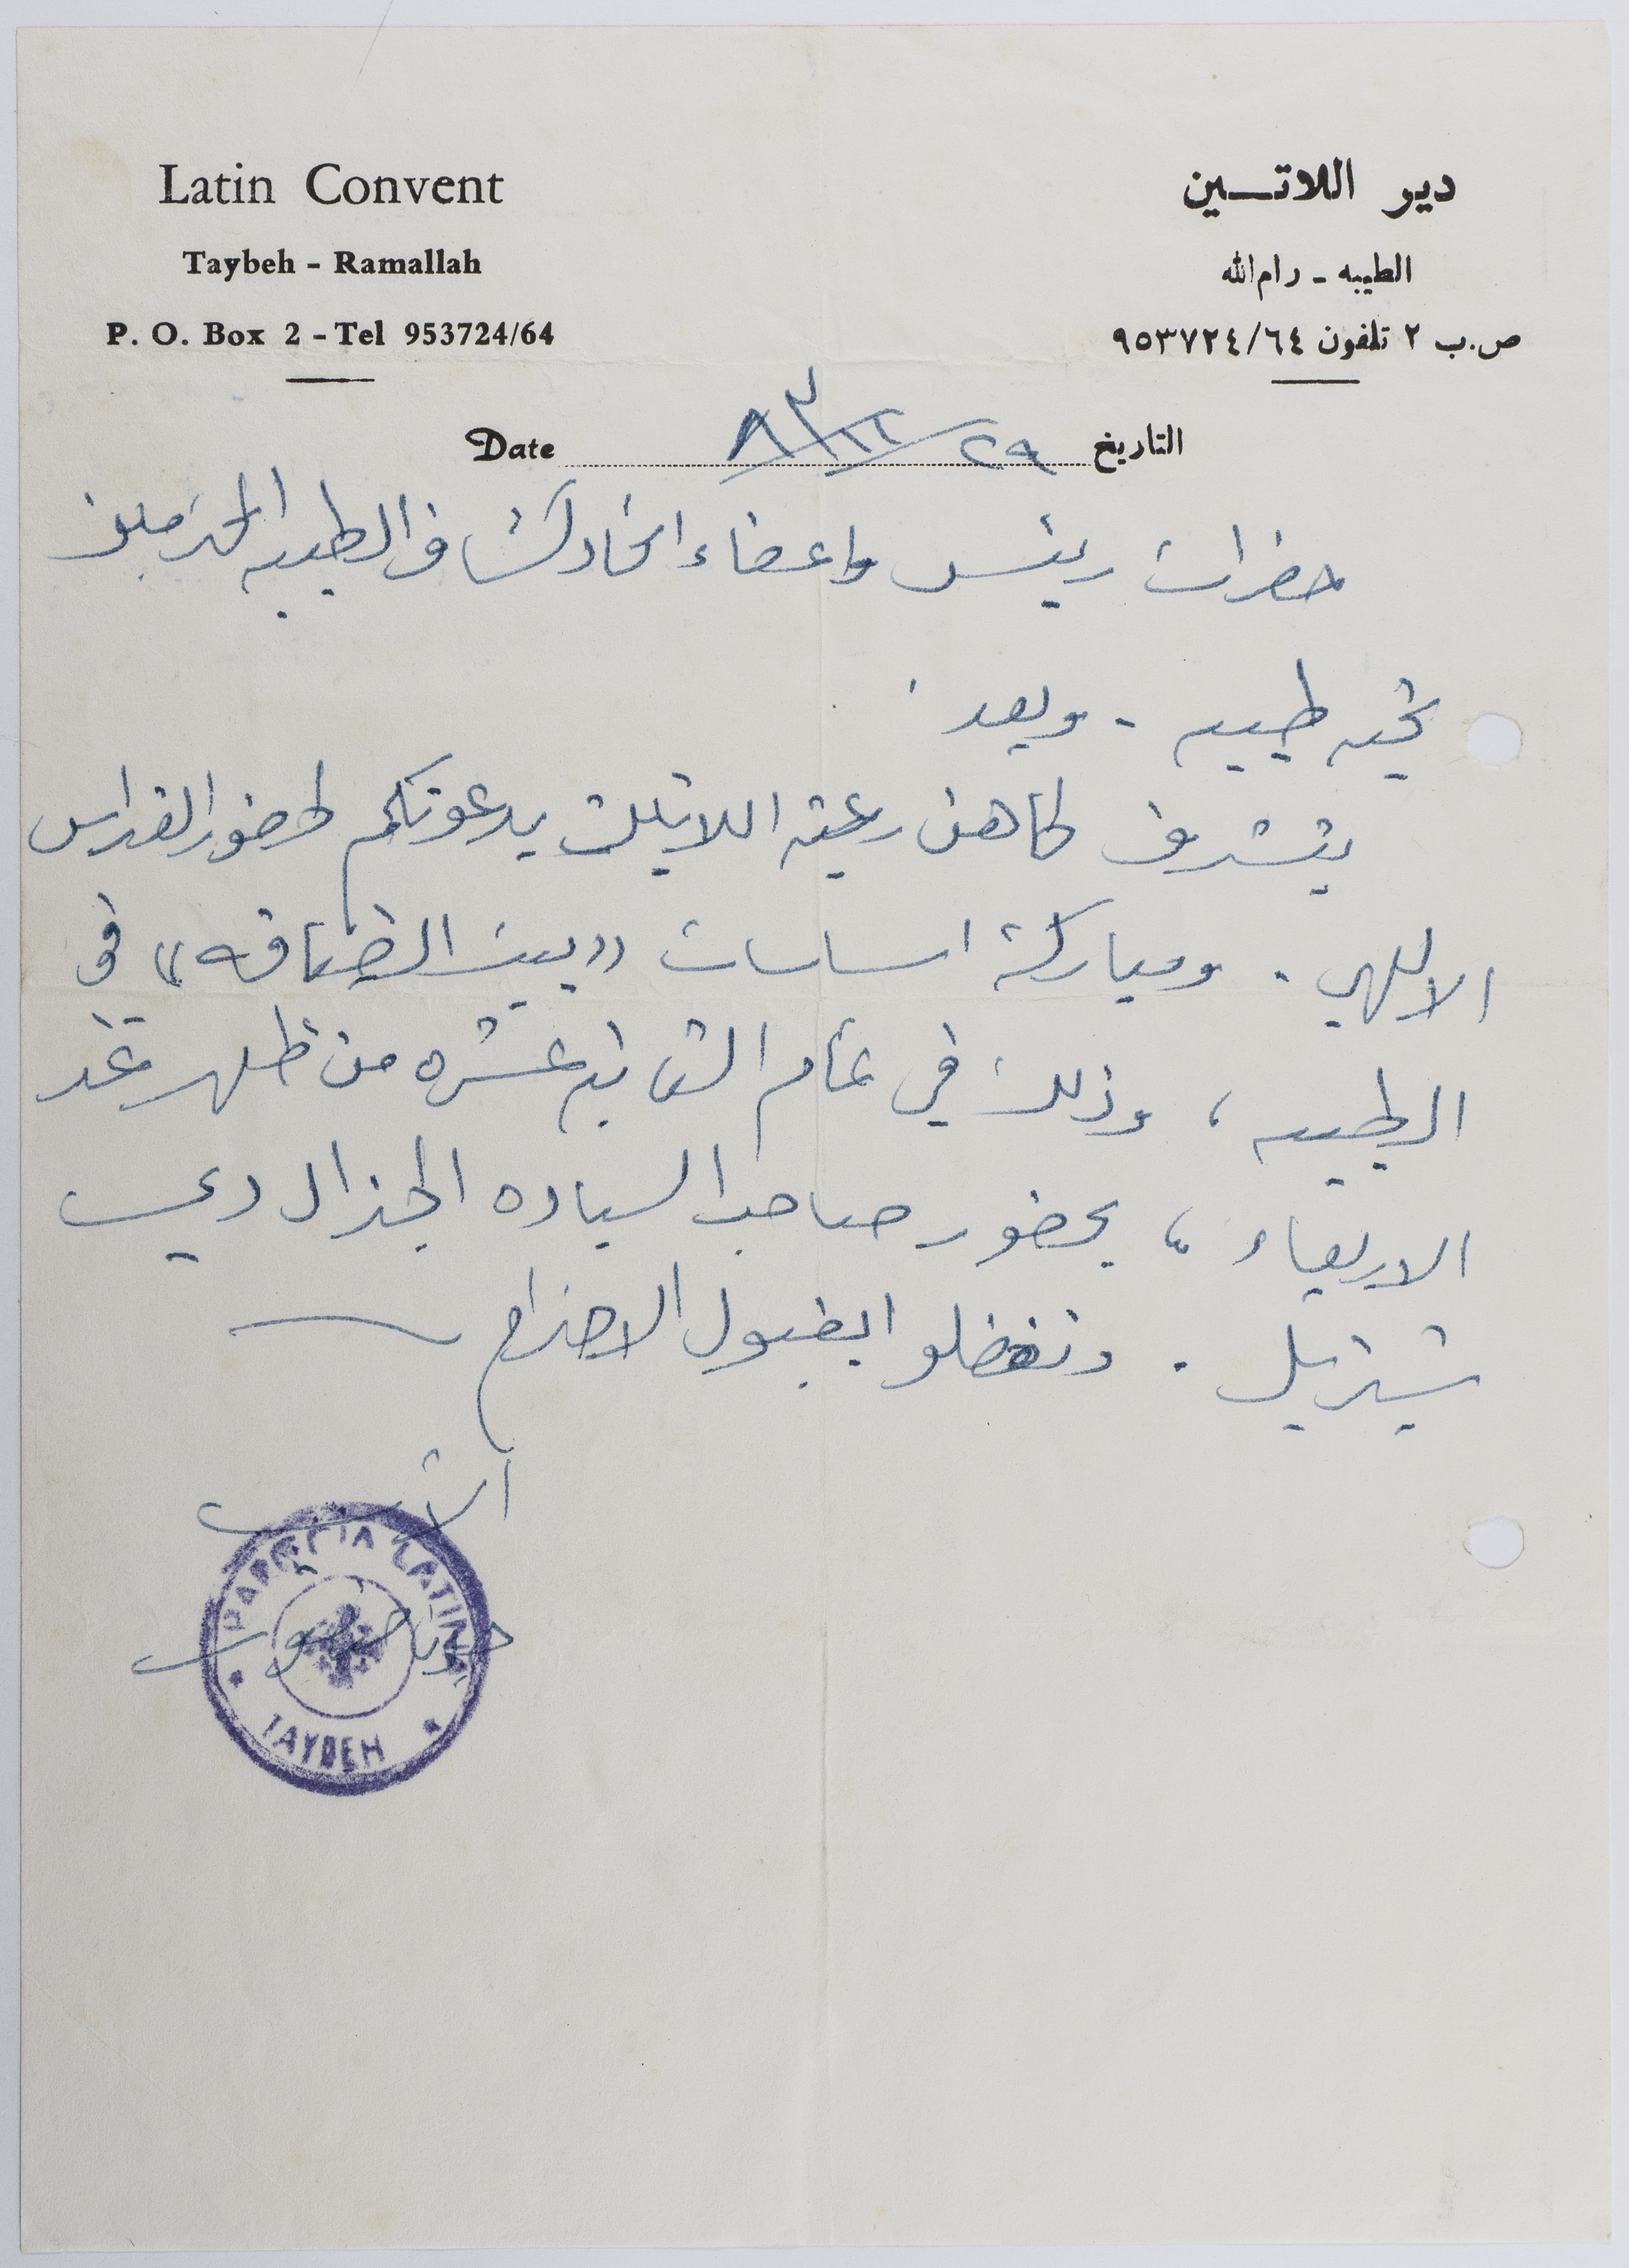 Latin Convent
Taybeh - Ramallah
P. O. Box 2 - Tel 953724/64
دير اللاتــين
الطيبه - رام الله
ص.ب ٢ تلفون ٩٥٣٧٢٤/٦٤
Date التاريخ ٢٩/
حضرات رئيس واعضاء اتحاد كشاف الطيبه المحترمين
تحيه طيبه - وبعد
يتشرف كاهن رعية اللاتين بدعوتكم لحضور القداس
الالهي . ومباركة اساسات ((بيت الضيافه)) في
الطيبه ، وذلك في تمام الثانيه عشره من ظهر غد
الاربعاء ، بحضور صاحب السياده الجنرال دي
شتزيل . وتفضلوا بقبول الاحترام
الأب
PAROCIA LATINA
TAYBEH